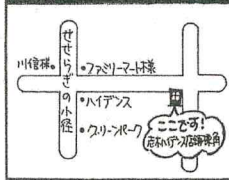 せせらぎの小径
川信様
ファミリーマート様
ハイデンス
グリーンパーク
ここです!